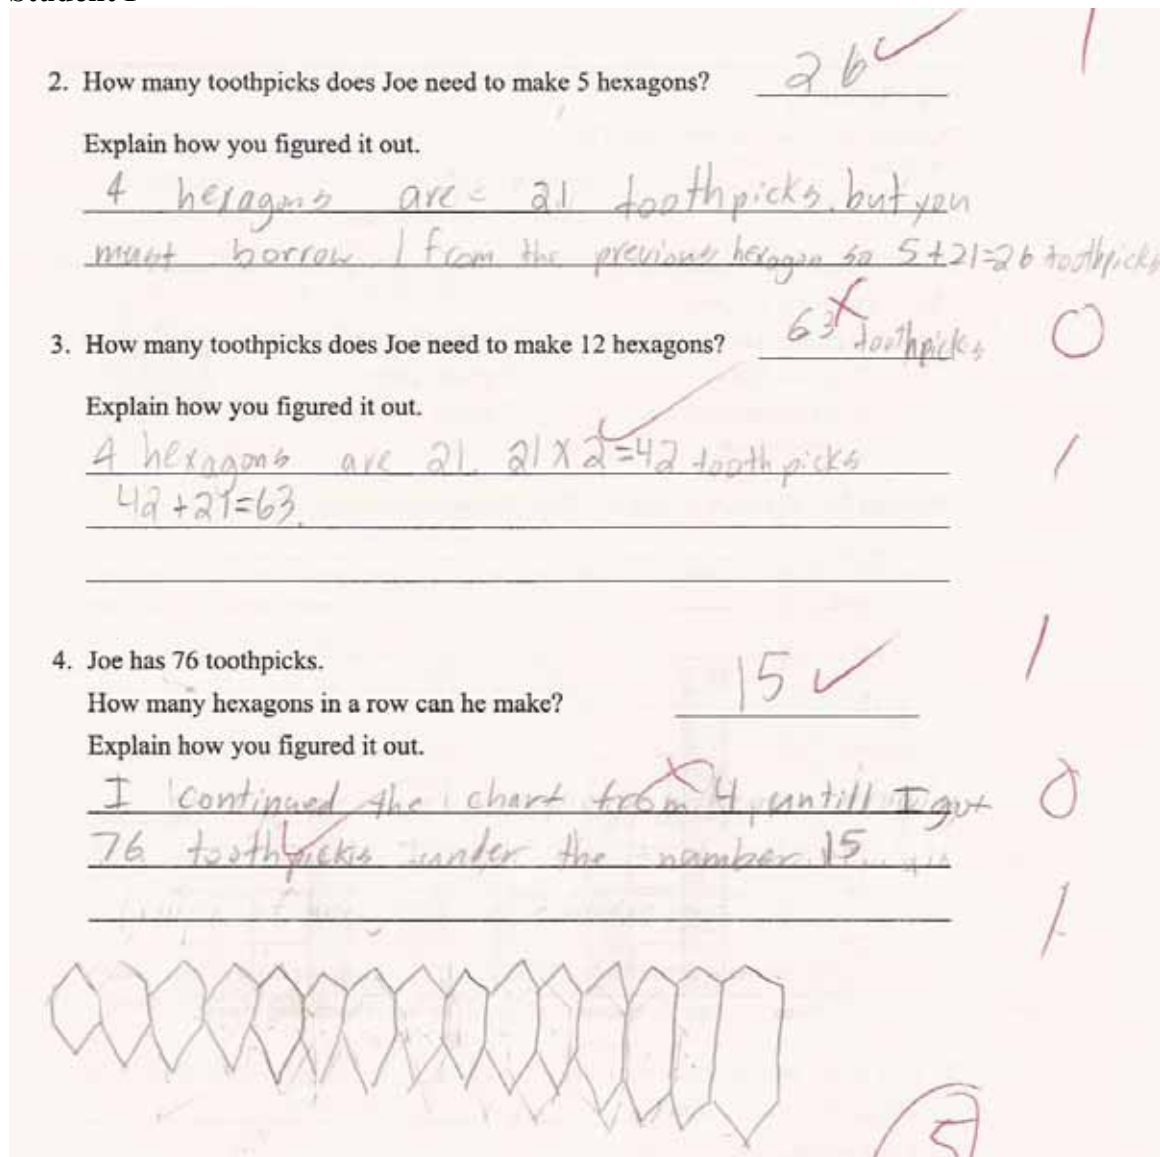 2. How many toothpicks does Joe need to make 5 hexagons? 26 1
Explain how you figured it out.
4 hexagons are = 21 toothpicks. but you
must borrow 1 from the previous hexagon so 5+21=26 toothpicks
3. How many toothpicks does Joe need to make 12 hexagons? 63 toothpicks 0
Explain how you figured it out.
4 hexagons are 21. 21 x 2=42 toothpicks 1
42+21=63.
4. Joe has 76 toothpicks. 1
How many hexagons in a row can he make? 15
Explain how you figured it out.
I continued the chart from 4 untill I got 0
76 toothpicks under the number 15
1
5